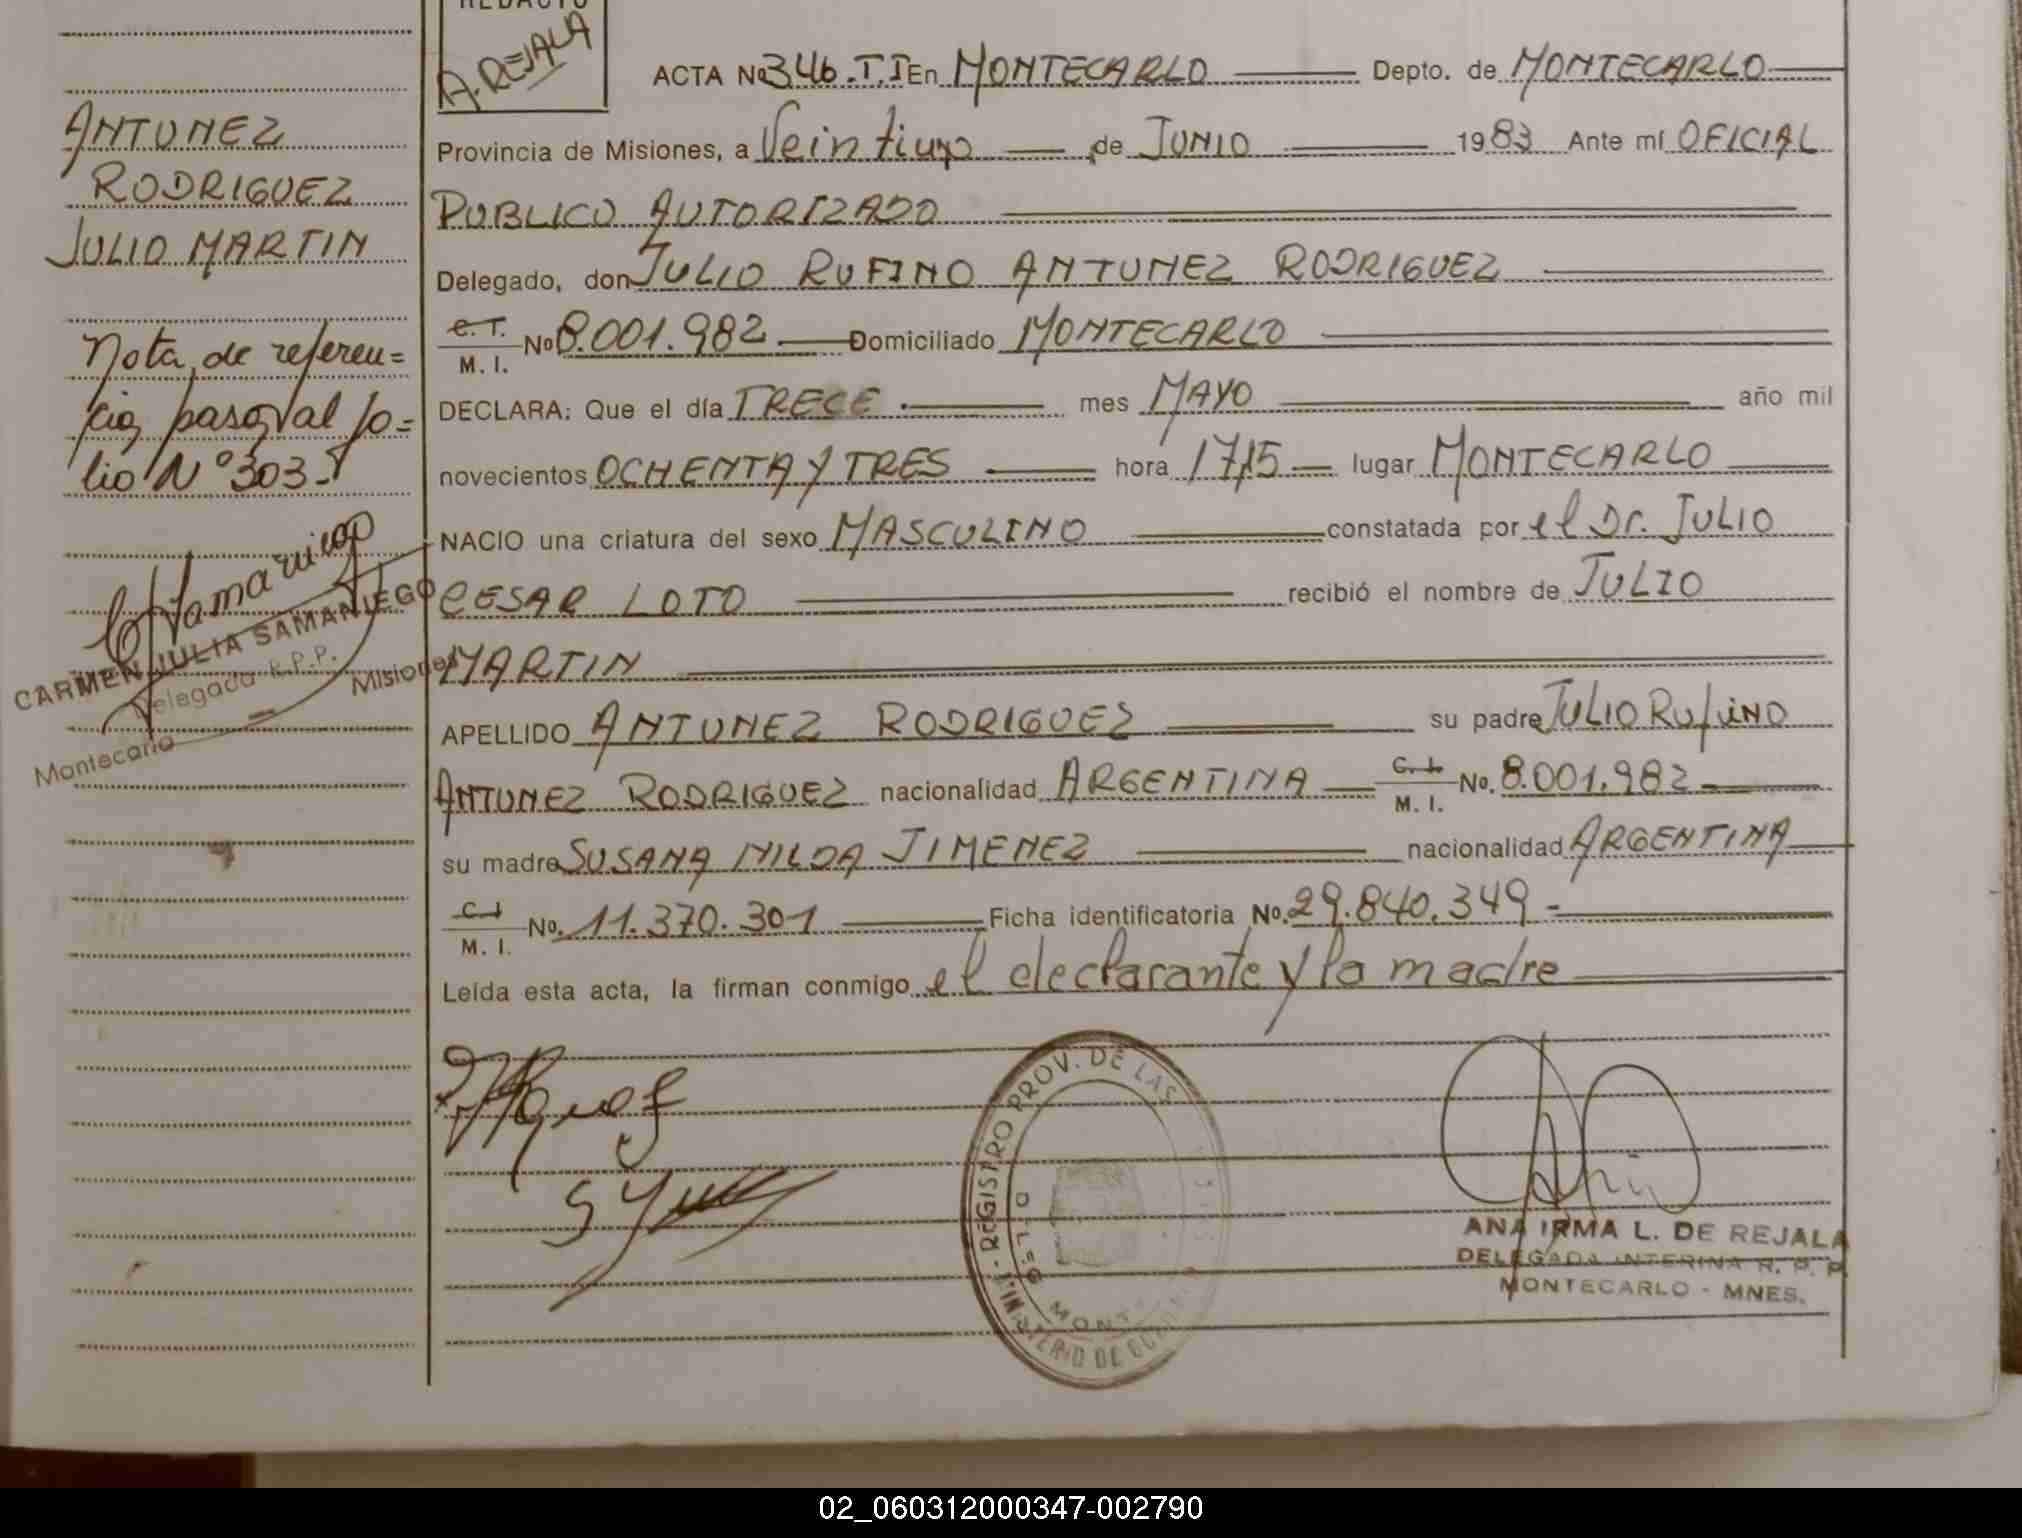 REDACTO
A. REJALA
ANTUNEZ
RODRIGUEZ
JULIO MARTIN
Nota de referen=
cia pasa al fo=
lio Nº 303.-
CARMEN JULIA SAMANIEGO
Delegada R.P.P.
Montecarlo Misiones
ACTA Nº 346.T.I En MONTECARLO Depto. de MONTECARLO
Provincia de Misiones, a Veintiuno de JUNIO 1983 Ante mí OFICIAL
PUBLICO AUTORIZADO
Delegado, don JULIO RUFINO ANTUNEZ RODRIGUEZ
C. I.
M. I. Nº 8.001.982 Domiciliado MONTECARLO
DECLARA: Que el día TRECE mes MAYO año mil
novecientos OCHENTA Y TRES hora 17,15 lugar MONTECARLO
NACIO una criatura del sexo MASCULINO constatada por el Dr. JULIO
CESAR LOTO recibió el nombre de JULIO
MARTIN
APELLIDO ANTUNEZ RODRIGUEZ su padre JULIO RUFINO
ANTUNEZ RODRIGUEZ nacionalidad ARGENTINA C. I.
M. I. No. 8.001.982
su madre SUSANA NILDA JIMENEZ nacionalidad ARGENTINA
C. I.
M. I. No. 11.370.301 Ficha identificatoria Nº. 29.840.349-
Leída esta acta, la firman conmigo el declarante y la madre
MINISTERIO DE REGISTRO PROV. DE LAS
MONT
ANA IRMA L. DE REJALA
DELEGADA INTERINA R. P. P.
MONTECARLO - MNES.
02_060312000347-002790